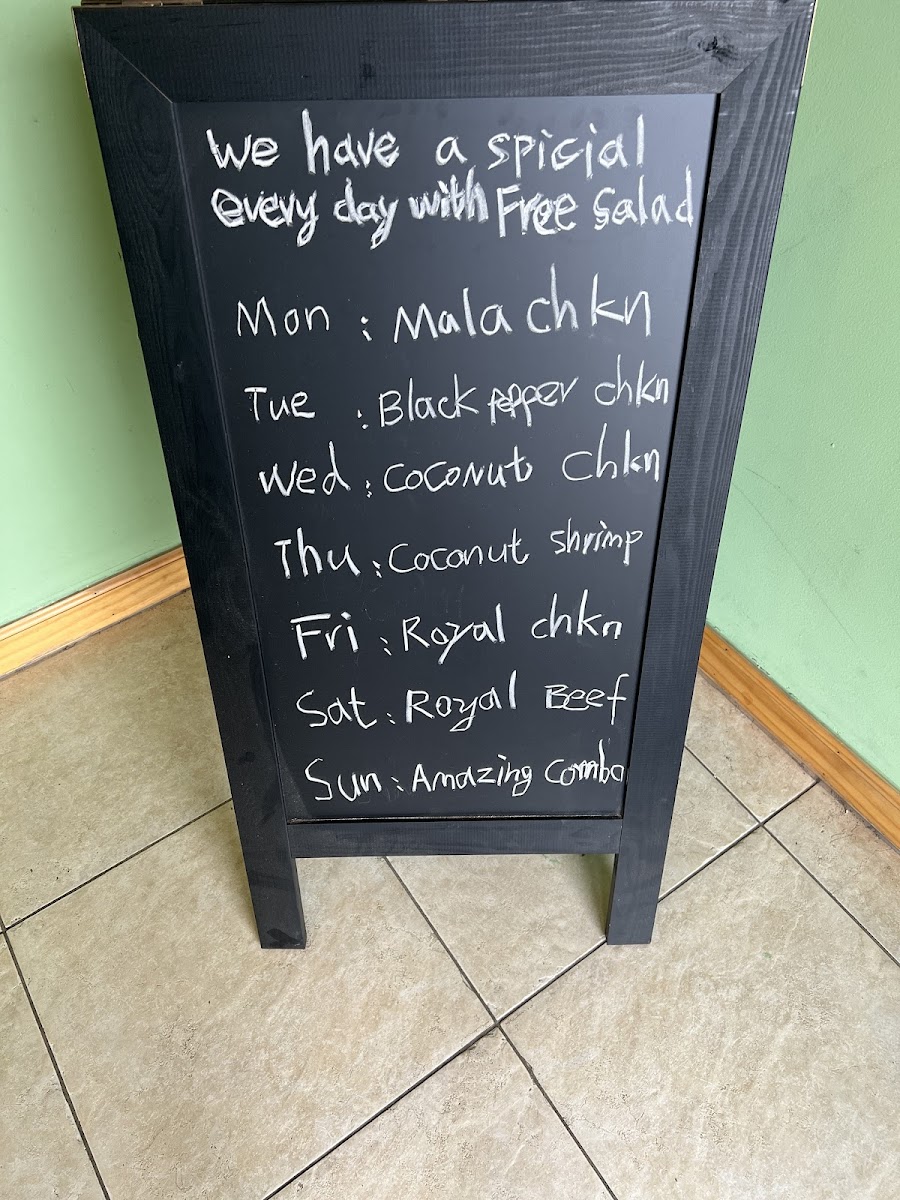 we have a spicial
every day with Free Salad
Mon : Mala chkn
Tue : Black pepper chkn
Wed : Coconut chkn
Thu : Coconut shrimp
Fri : Royal chkn
Sat : Royal Beef
Sun : Amazing combo